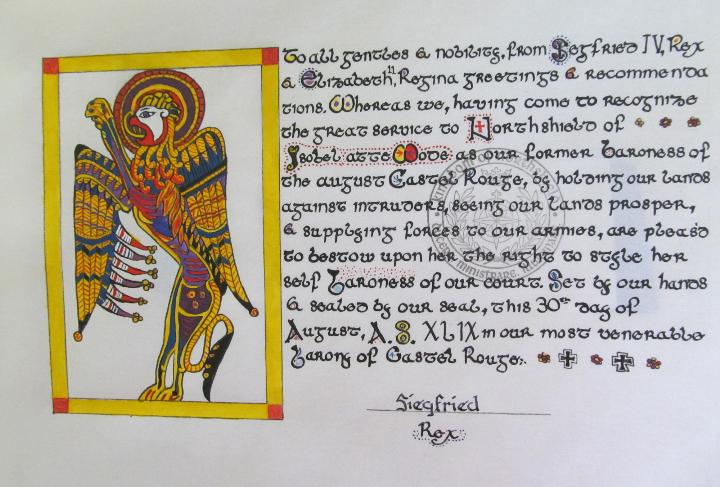 To all gentles & nobility, from Segfried IV, Rex
& Elizabeth, Regina greetings & recommenda
tions. Whereas we, having come to recognize
the great service to Northshield of
Isobel atte Wode as our former Baroness of
the august Castel Rouge, by holding our lands
against intruders, seeing our lands prosper,
& supplying forces to our armies, are pleas'd
to bestow upon her the right to style her
self Baroness of our court. Set by our hands
& sealed by our seal, this 30th day of
August, A. S. XLIX in our most venerable
Barony of Castel Rouge:.
Siegfried
Rex